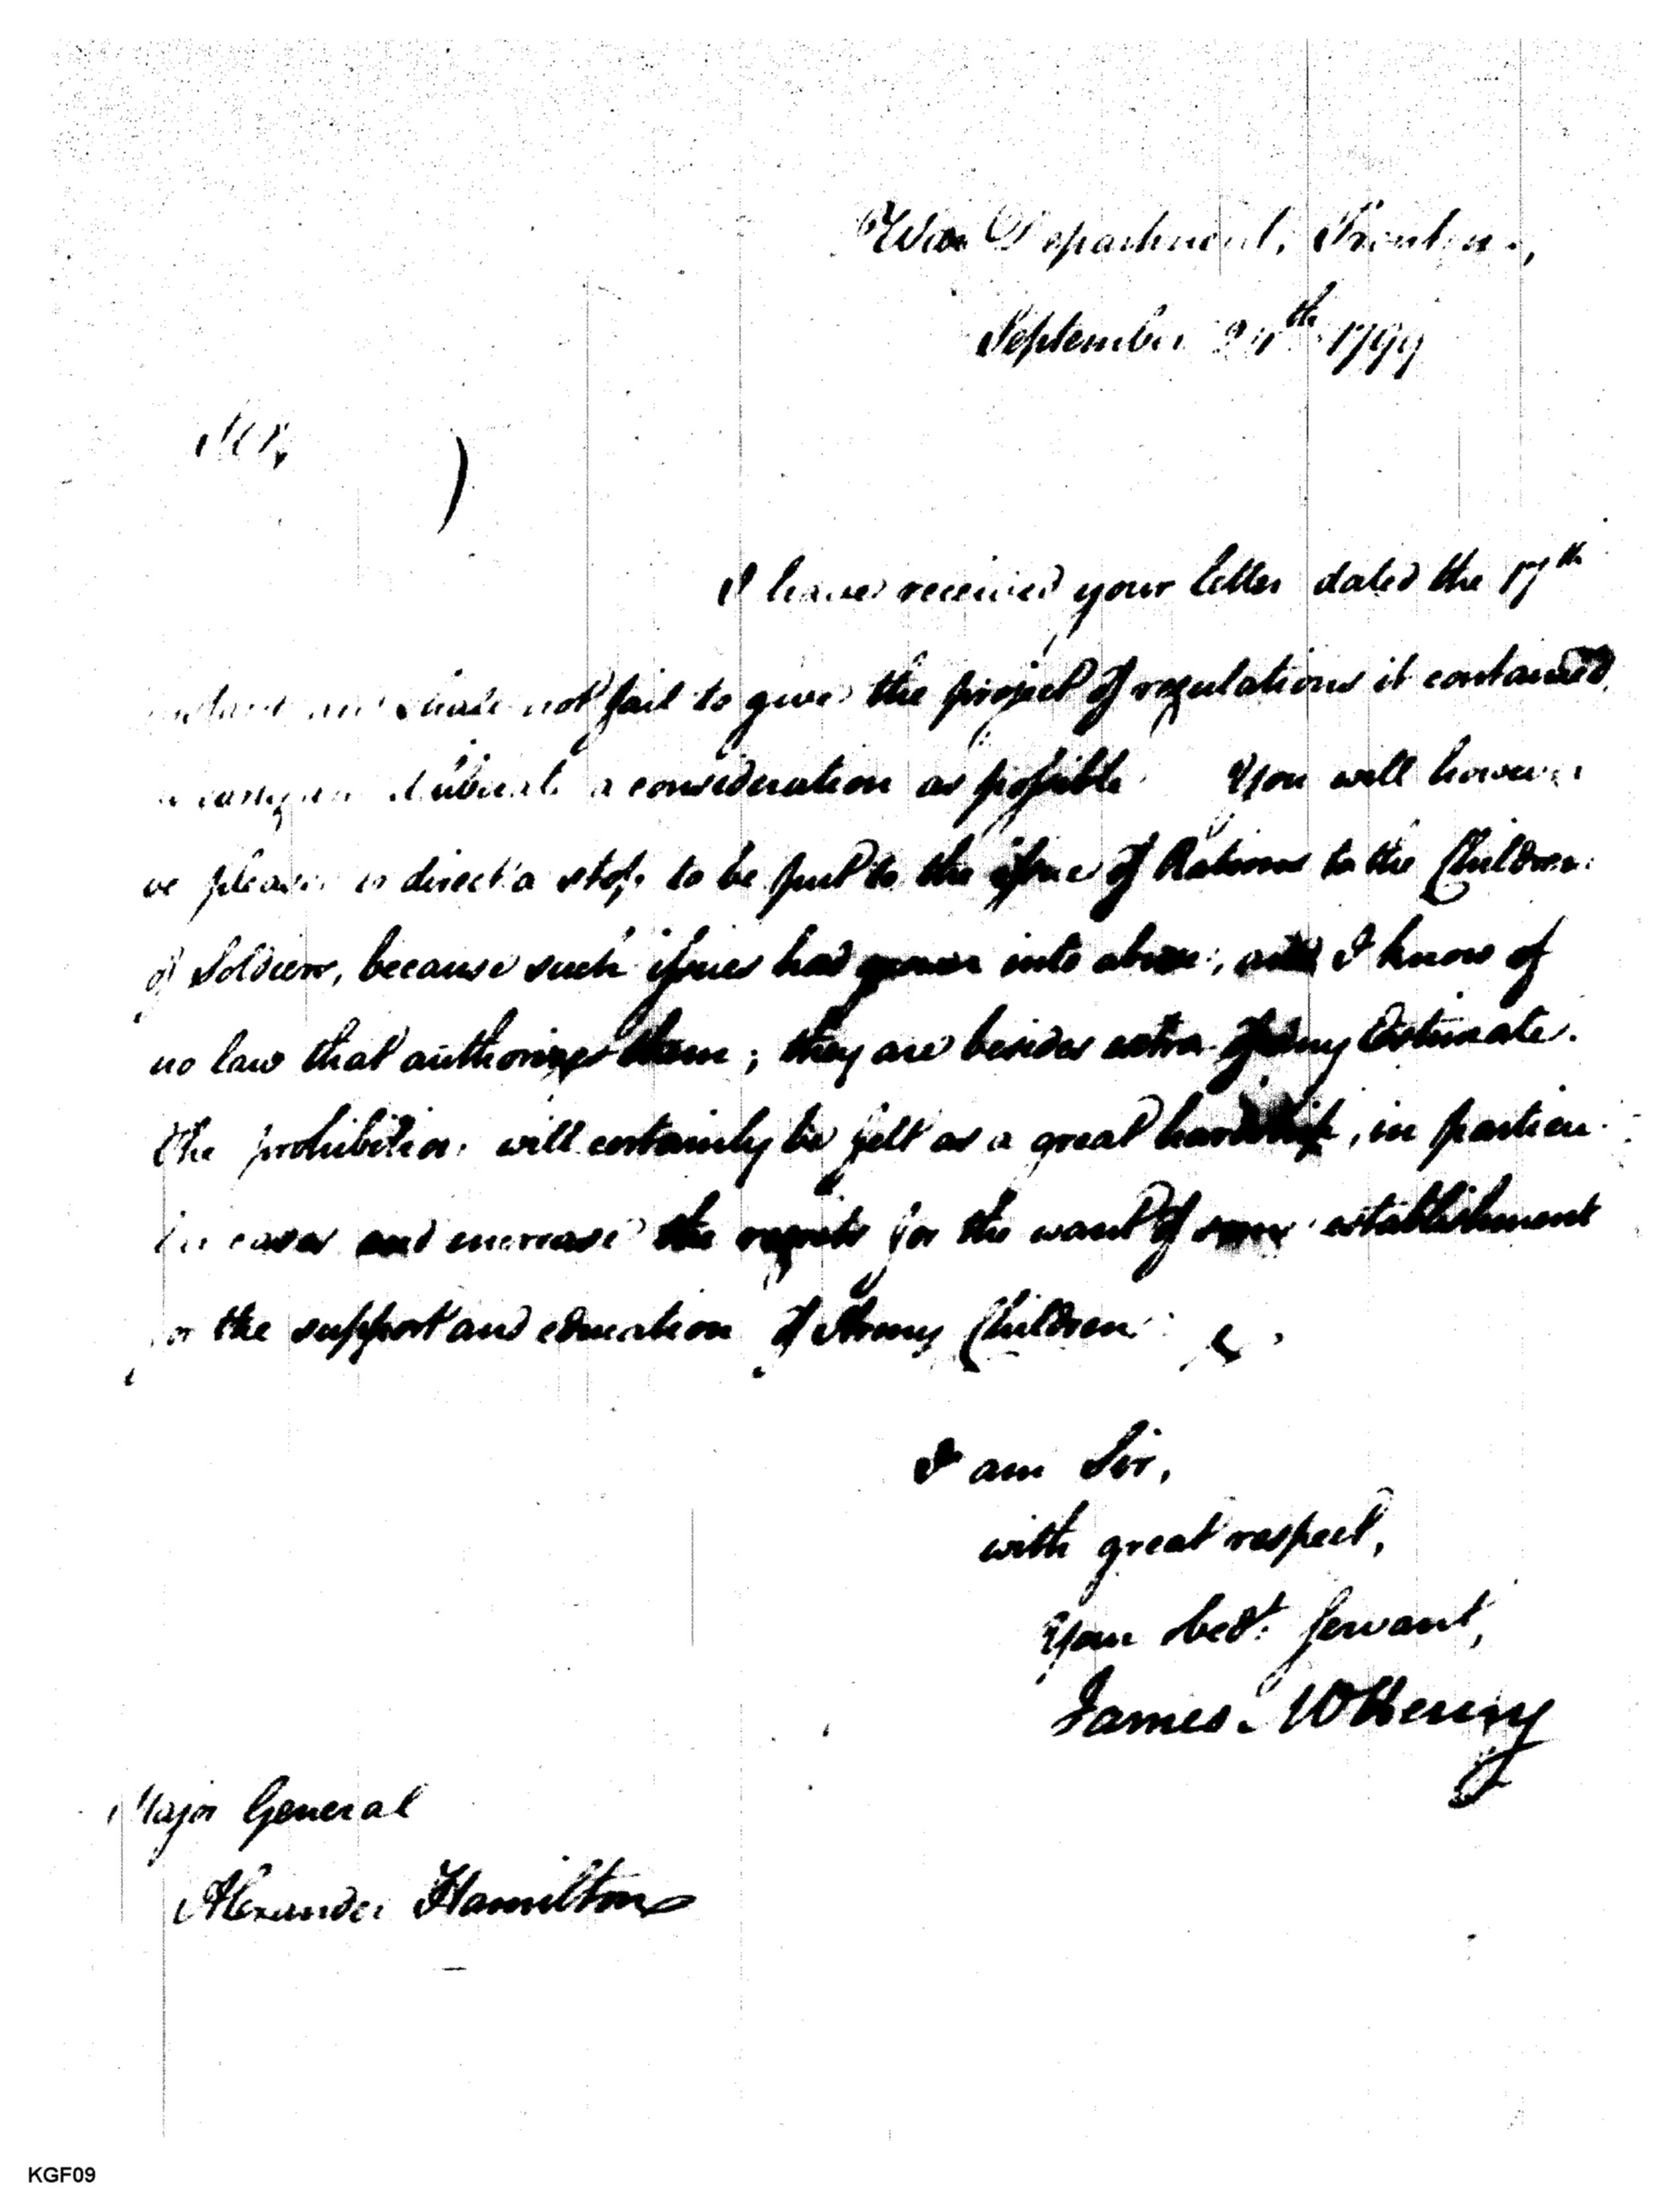 War Department, Trenton,
September 24th 1799
Sir,
I have received your letter dated the 17th
instant and shall not fail to give the project of regulations it contained,
a consideration as possible. You will however
be pleased to direct a stop to be put to the issue of Rations to the Children
of Soldiers, because such issues had grown into abuse, and I know of
no law that authorizes them; they are besides extra of my Estimate.
The prohibition will certainly be felt as a great hardship, in particu-
lar cases and increase the regrets for the want of some establishment
for the support and education of Army Children.
I am Sir,
with great respect,
Your obedt. Servant,
James McHenry
Major General
Alexander Hamilton
KGF09